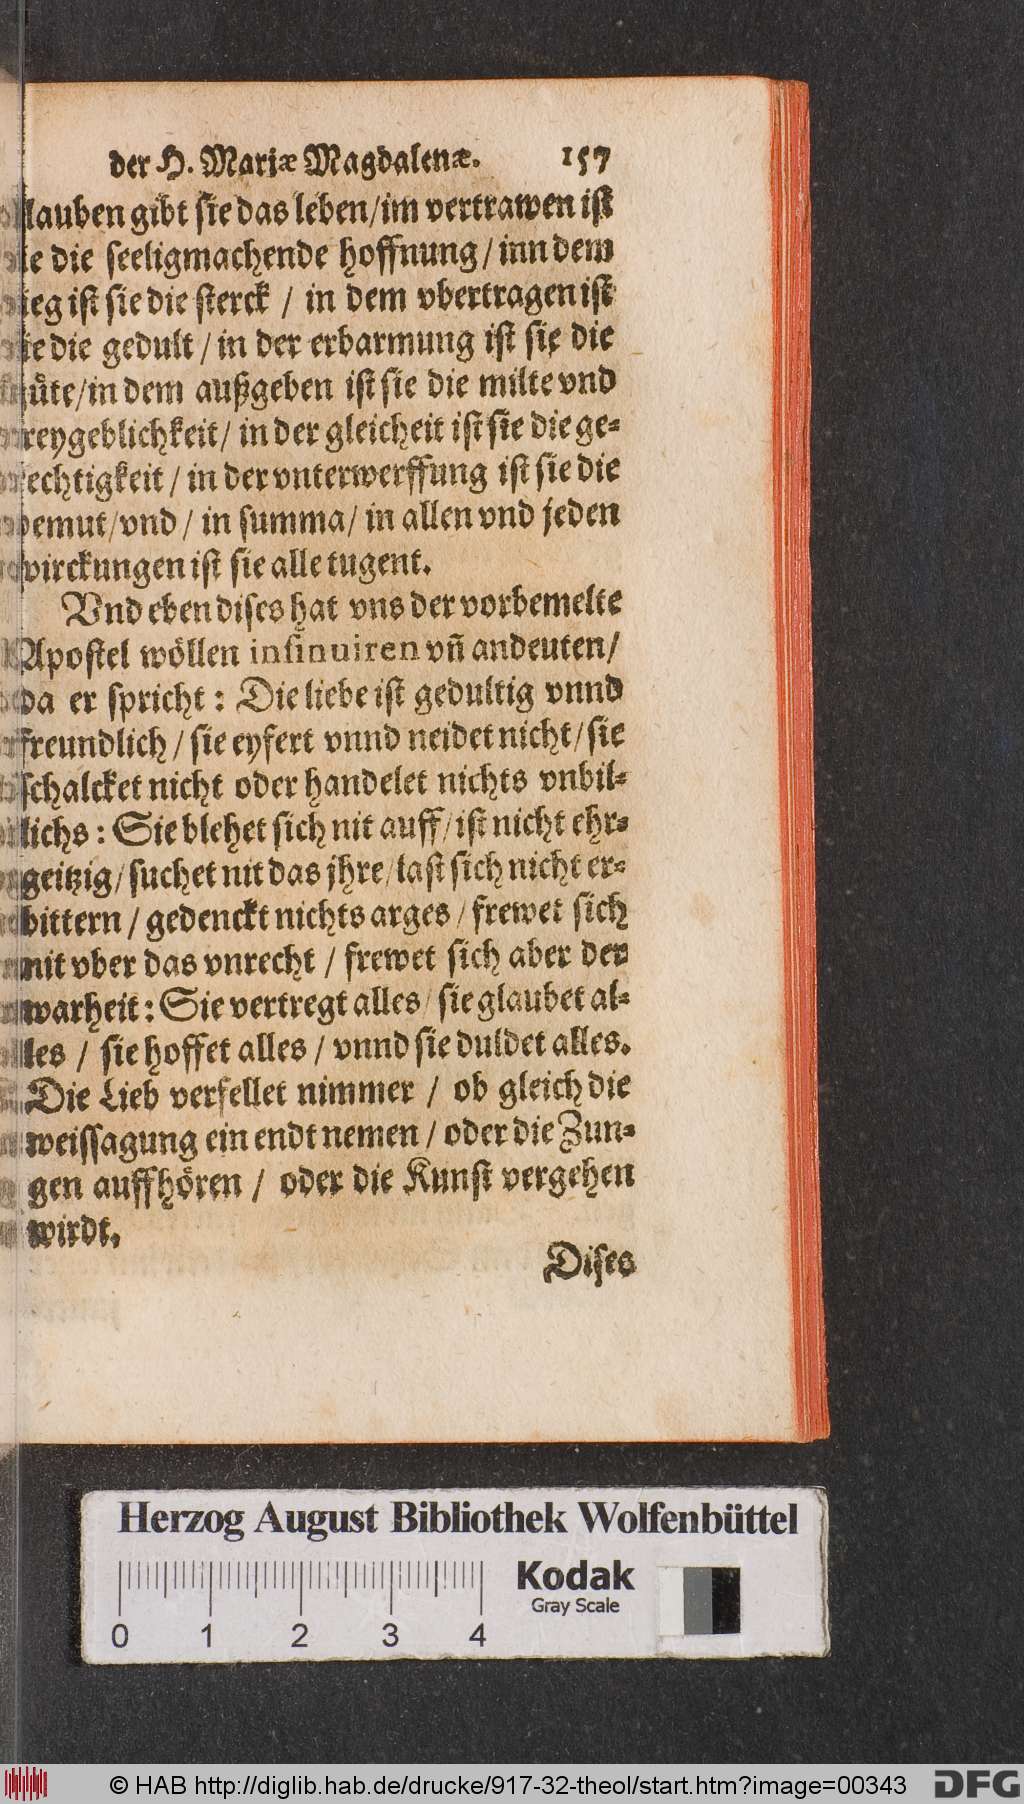 der H. Mariæ Magdalenæ. 157
lauben gibt sie das leben/im vertrawen ist
ie die seeligmachende hoffnung/inn dem
ieg ist sie die sterck / in dem vbertragen ist
ie die gedult / in der erbarmung ist sie die
üte/in dem außgeben ist sie die milte vnd
reygeblichkeit/ in der gleicheit ist sie die ge-
echtigkeit / in der vnterwerffung ist sie die
demut/vnd / in summa/ in allen vnd jeden
wirckungen ist sie alle tugent.
Vnd eben dises hat vns der vorbemelte
Apostel wöllen insinuiren vñ andeuten/
da er spricht: Die liebe ist gedultig vnnd
freundlich / sie eyfert vnnd neidet nicht/sie
schalcket nicht oder handelet nichts vnbil-
lichs: Sie blehet sich nit auff/ist nicht ehr-
geitzig/suchet nit das jhre/last sich nicht er-
bittern / gedenckt nichts arges / frewet sich
nit vber das vnrecht / frewet sich aber der
warheit: Sie vertregt alles/ sie glaubet al-
les / sie hoffet alles / vnnd sie duldet alles.
Die Lieb verfellet nimmer / ob gleich die
weissagung ein endt nemen / oder die Zun-
gen auffhören / oder die Kunst vergehen
wirdt.
Dises
Herzog August Bibliothek Wolfenbüttel
Kodak
Gray Scale
0 1 2 3 4
© HAB http://diglib.hab.de/drucke/917-32-theol/start.htm?image=00343
DFG